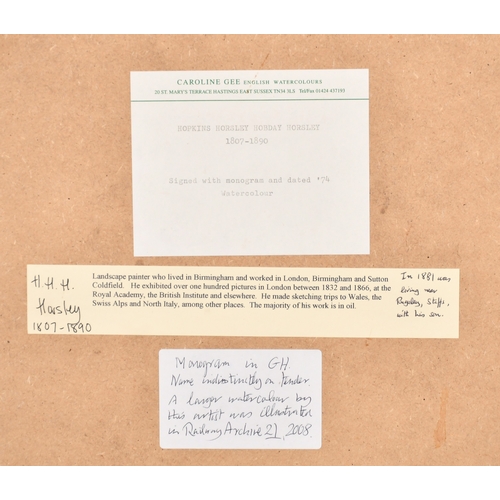 CAROLINE GEE ENGLISH WATERCOLOURS
20 ST. MARY'S TERRACE HASTINGS EAST SUSSEX TN34 3LS Tel/Fax 01424 437193
HOPKINS HORSLEY HOBDAY HORSLEY
1807-1890
Signed with monogram and dated '74
Watercolour
H.H.H.
Horsley
1807-1890
Landscape painter who lived in Birmingham and worked in London, Birmingham and Sutton
Coldfield. He exhibited over one hundred pictures in London between 1832 and 1866, at the
Royal Academy, the British Institute and elsewhere. He made sketching trips to Wales, the
Swiss Alps and North Italy, among other places. The majority of his work is in oil.
In 1881 was
living near
Rugeley, Staffs,
with his son.
Monogram in GH.
Name indistinctly on Tender.
A larger watercolour by
this artist was illustrated
in Railway Archive 21, 2008.